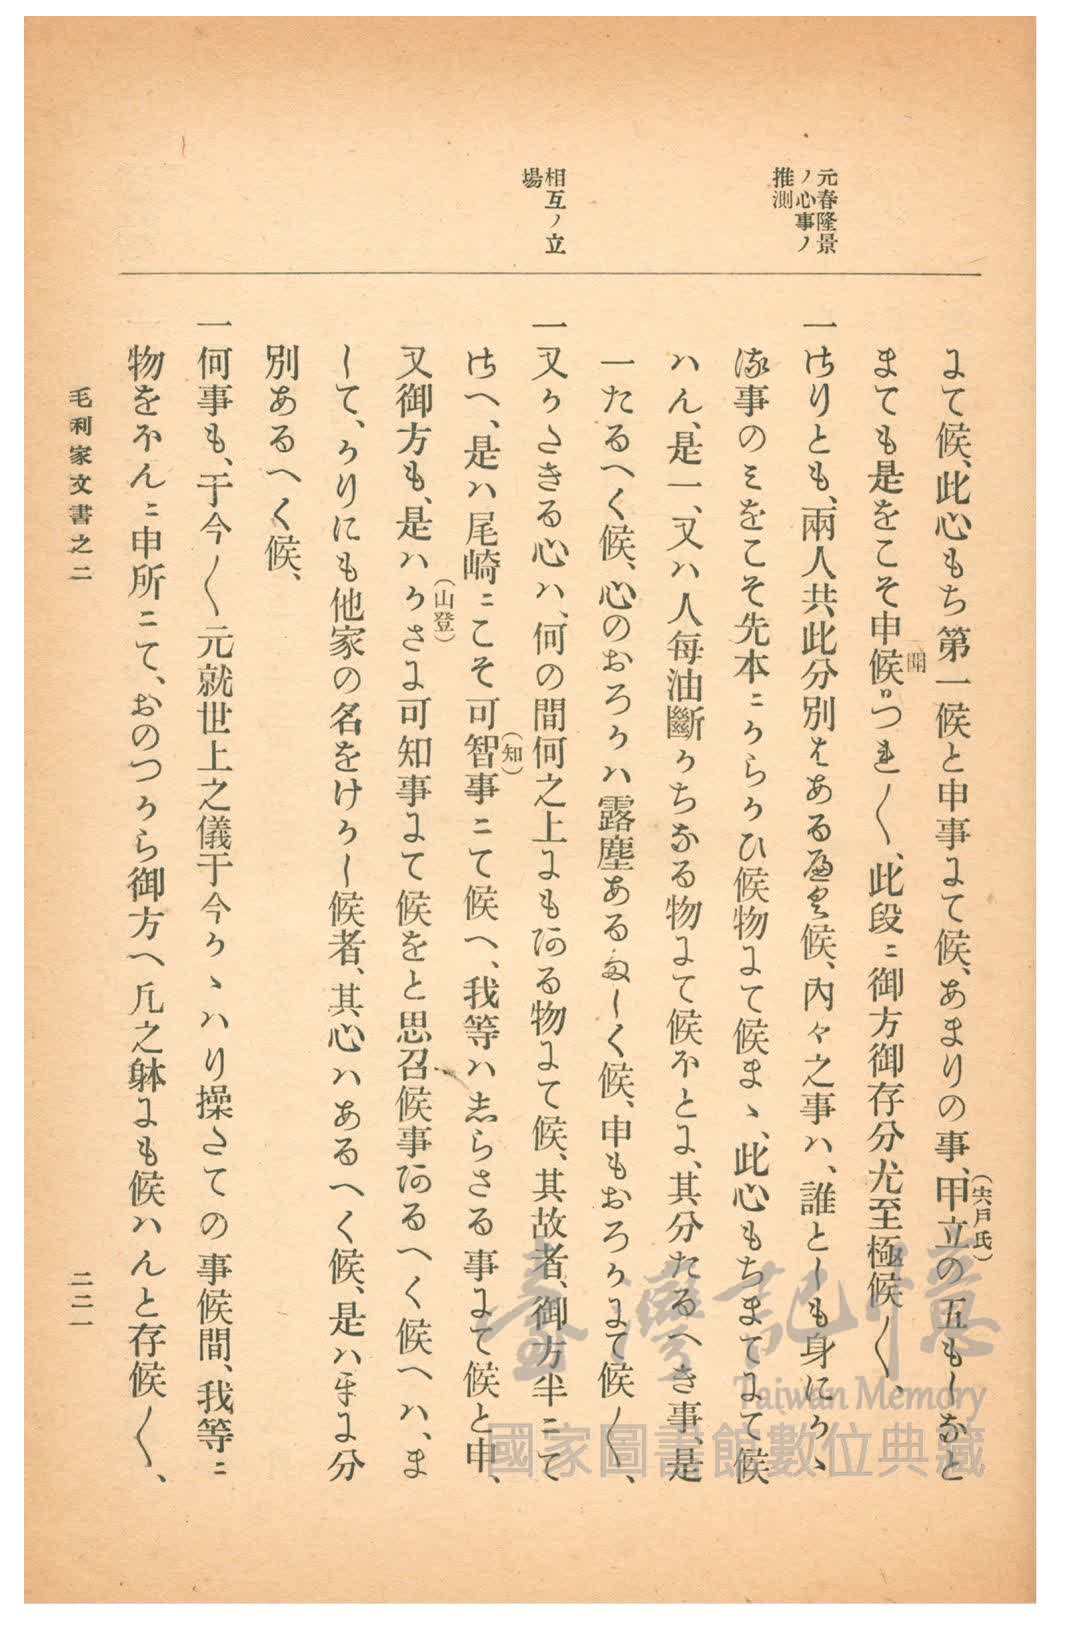 元春隆景
ノ心事ノ
推測
相互ノ立
場
にて候、此心もち第一候と申事にて候、あまりの事、甲立の五もしなと
(宍戸氏)
まても是をこそ申候つれ〱、此段ニ御方御存分尤至極候〱、
聞
一けりとも、兩人共、此分別はある候、內々之事ハ、誰としも身にかゝ
る事のミをこそ先本ニからかひ候物にて候まゝ、此心もちまてにて候
ハん、是一、又ハ人每油斷かちなる物にて候ほとに、其分たるへき事、是
一たるへく候、心のおろかハ露塵あるましく候、申もおろかにて候〱、
一又かたきる心ハ、何の間何之上にもある物にて候、其故者、御方半ニて
けへ、是ハ尾崎ニこそ可智事ニて候へ、我等ハしらさる事にて候と申、
(知)
又御方も、是ハかさに可知事にて候をと思召候事あるへく候へハ、ま
(山登)
して、かりにも他家の名をけかし候者、其心ハあるへく候、是ハ牙に分
別あるへく候、
一何事も、于今〱元就世上之儀于今かゝハり操たての事候間、我等ニ
物をほんニ申所ニて、おのつから御方へ凡之躰にも候ハんと存候〱、
毛利家文書之二
二二一
臺灣記憶
Taiwan Memory
國家圖書館數位典藏